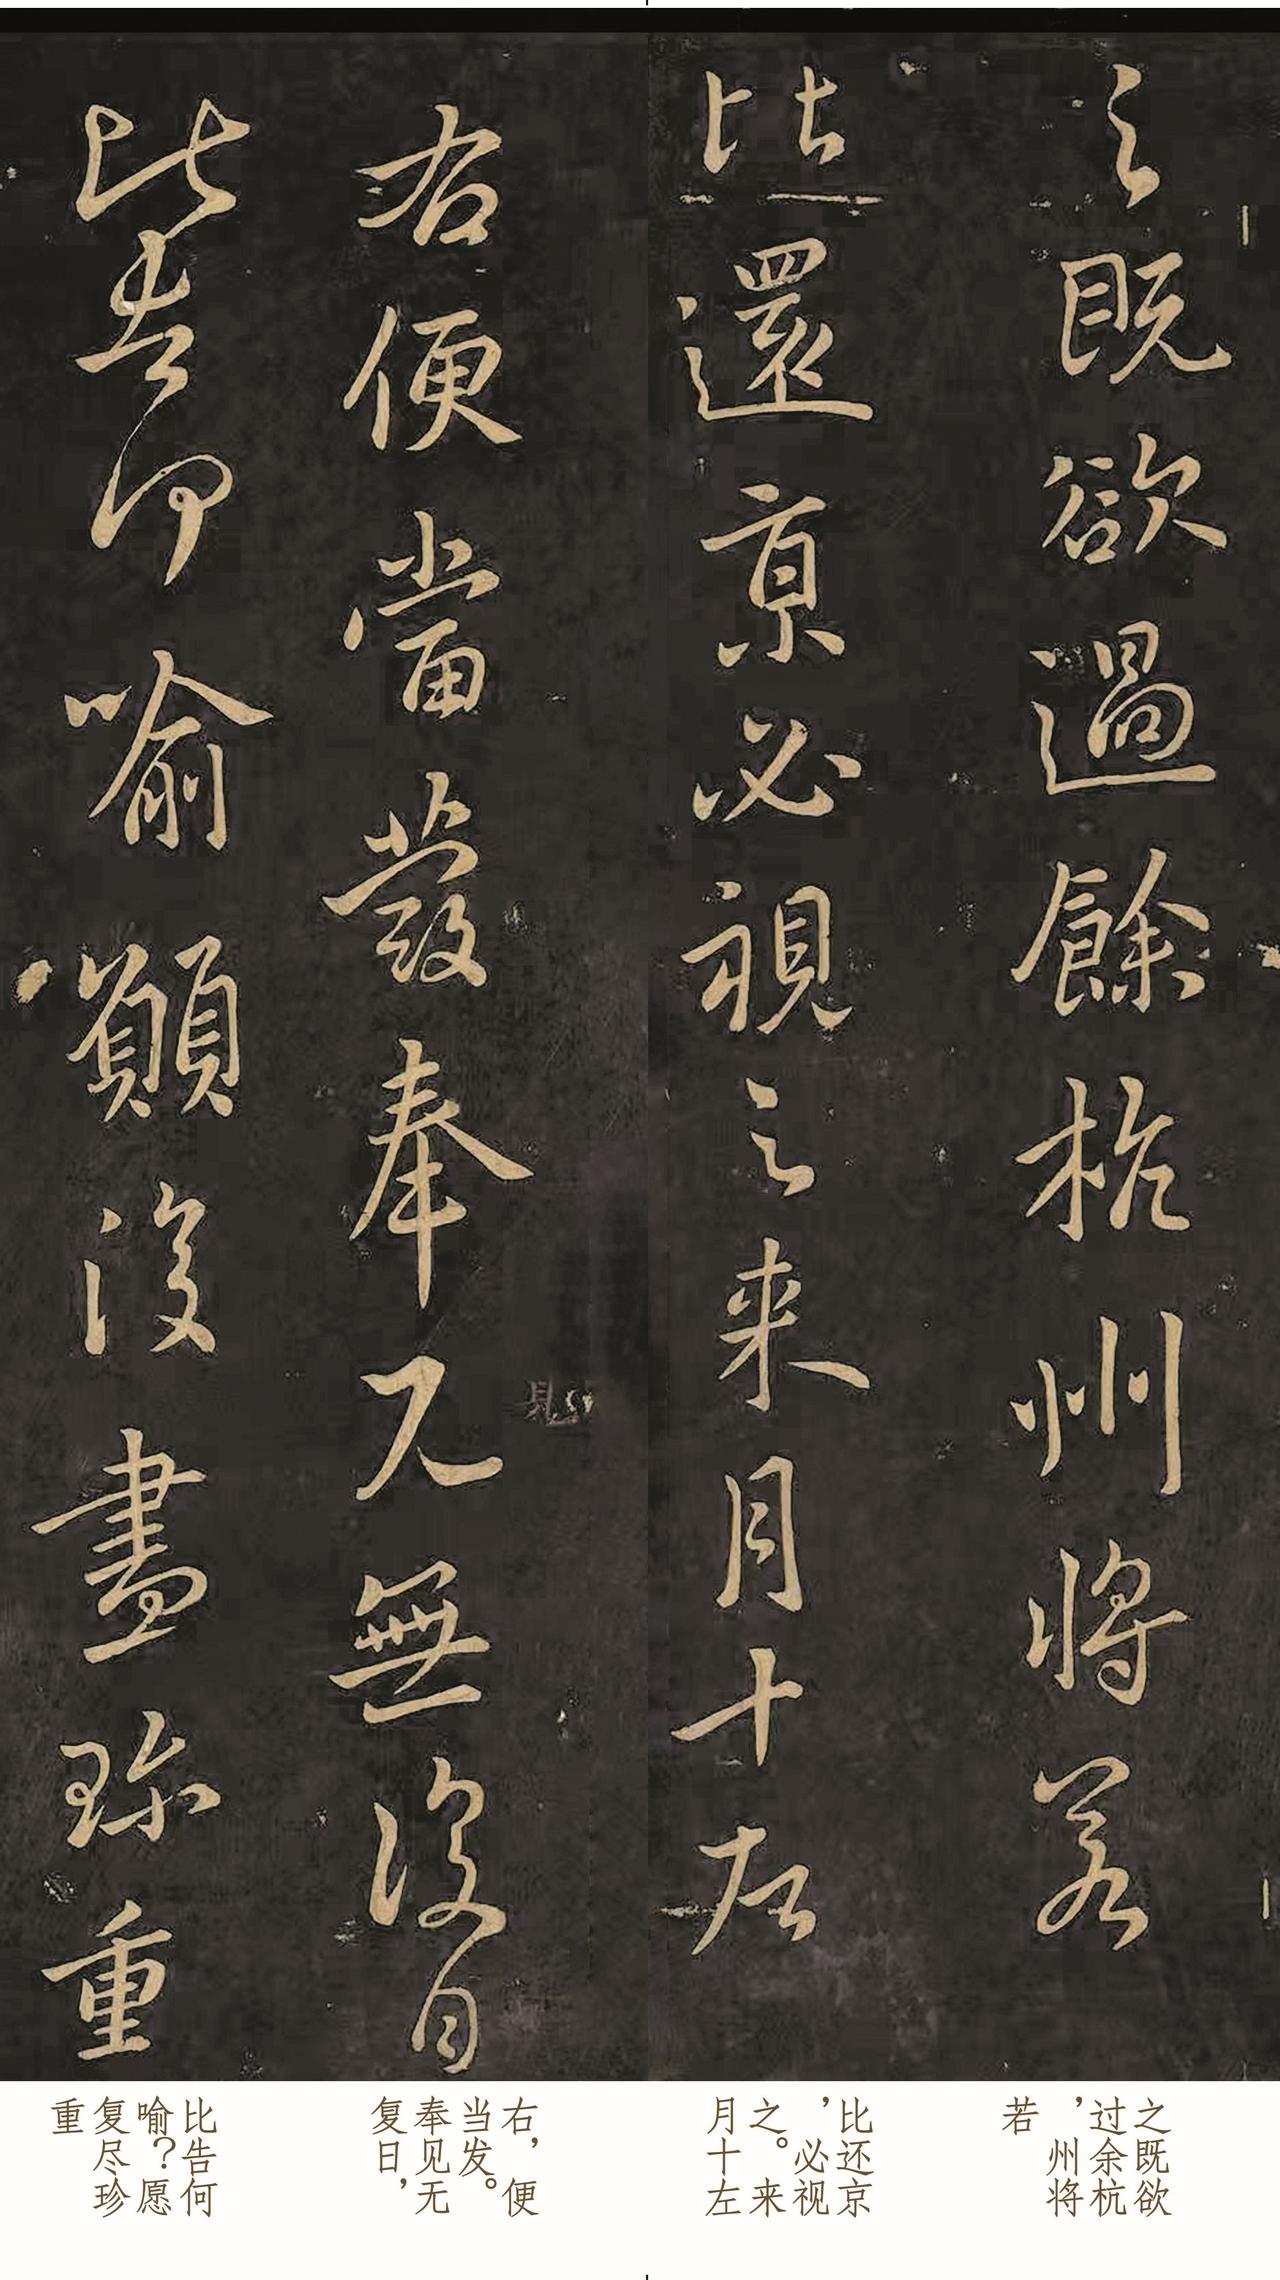 之既欲過餘杭州將若
比還京必視之来月十左
右便當發奉見無復日
比告何喻願復盡珍重
之既欲
过余杭
，州将
若
比还京
，必视
之。来
月十左
右，便
当发。
奉见无
复日，
比告何
喻？愿
复尽珍
重